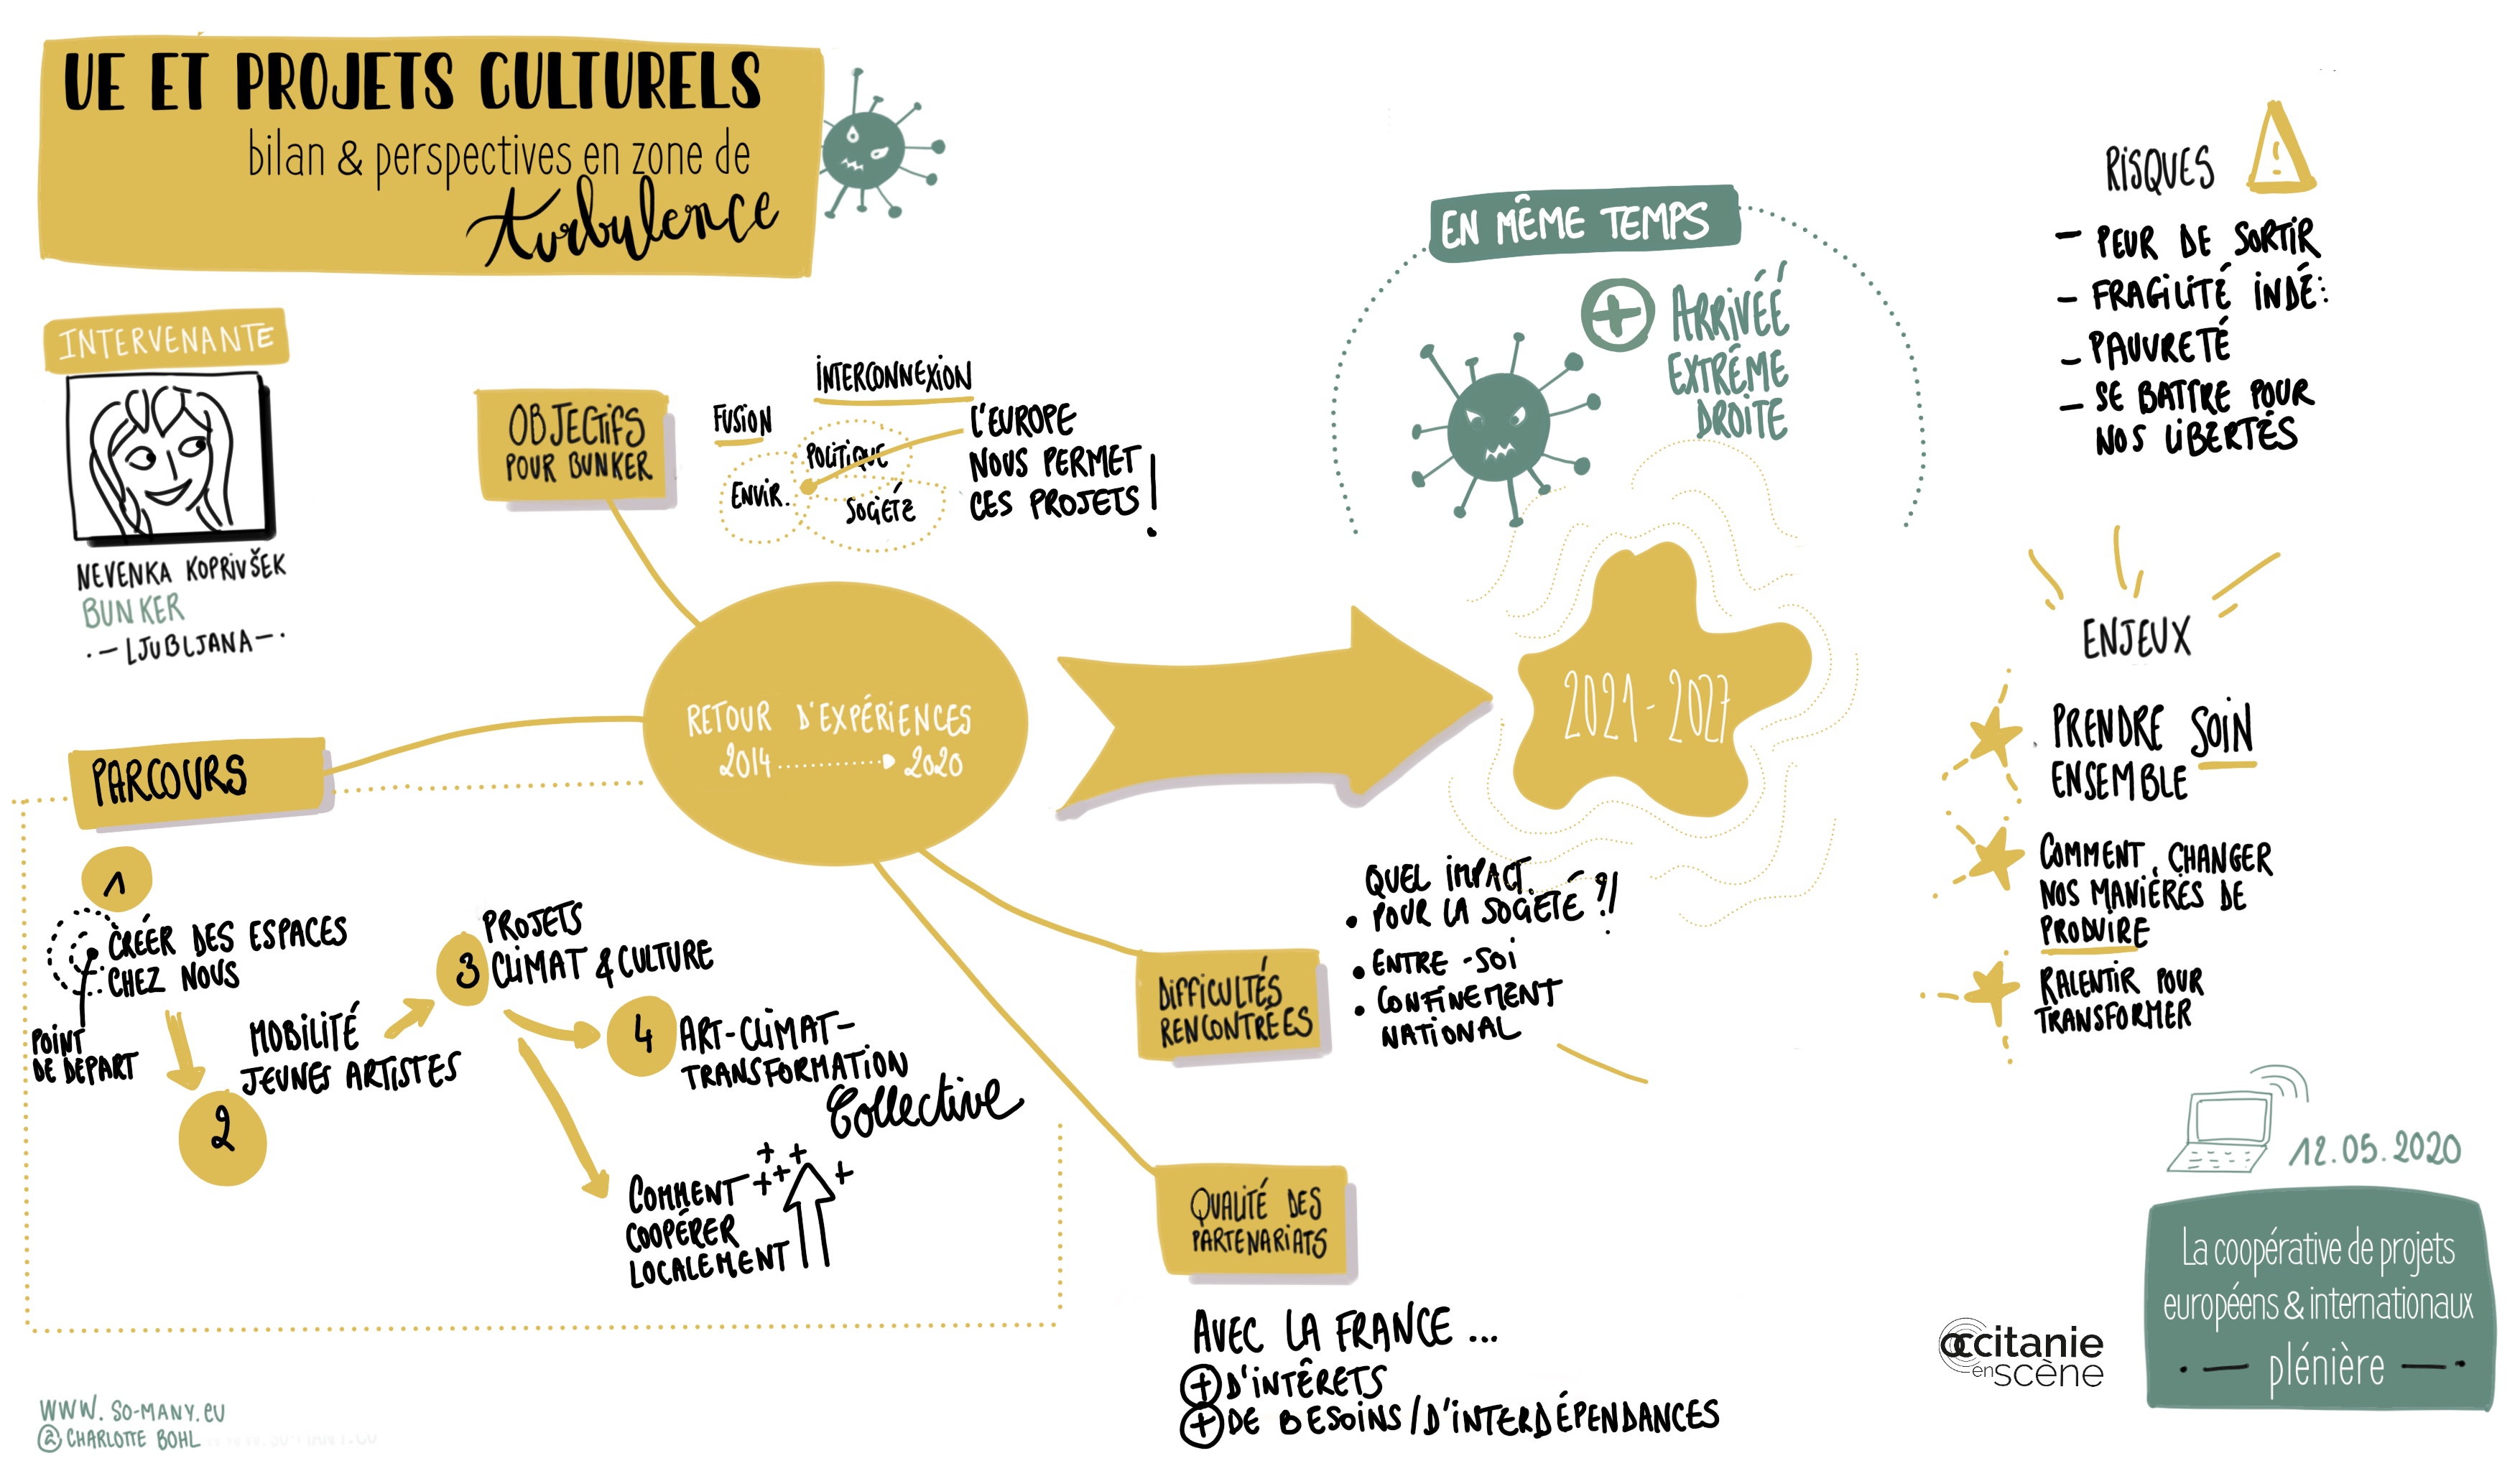 UE ET PROJETS CULTURELS
bilan & perspectives en zone de
turbulence
INTERVENANTE
NEVENKA KOPRIVŠEK
BUNKER
·—LJUBLJANA—·
OBJECTIFS
POUR BUNKER
INTERCONNEXION
FUSION
POLITIQUE
ENVIR.
SOCIÉTÉ
L'EUROPE
NOUS PERMET
CES PROJETS!
RETOUR D'EXPÉRIENCES
2014 2020
PARCOURS
1
CRÉER DES ESPACES
CHEZ NOUS
POINT
DE DÉPART
2
MOBILITÉ
JEUNES ARTISTES
3
PROJETS
CLIMAT & CULTURE
4
ART-CLIMAT-
TRANSFORMATION
Collective
COMMENT
COOPÉRER
LOCALEMENT
+ + + + + +
EN MÊME TEMPS
+ ARRIVÉÉ
EXTRÉME
DROITE
2021-2027
DIFFICULTÉS
RENCONTRÉES
QUEL IMPACT
• POUR LA SOCIÉTÉ ?!
• ENTRE-SOI
• CONFINEMENT
NATIONAL
QUALITÉ DES
PARTENARIATS
AVEC LA FRANCE ...
+ D'INTÉRETS
+ DE BESOINS/D'INTERDÉPENDANCES
RISQUES
!
- PEUR DE SORTIR
- FRAGILITÉ INDÉ:
- PAUVRETÉ
- SE BATTRE POUR
NOS LIBERTÉS
ENJEUX
PRENDRE SOIN
ENSEMBLE
COMMENT CHANGER
NOS MANIÈRES DE
PRODUIRE
RALENTIR POUR
TRANSFORMER
12.05.2020
La coopérative de projets
européens & internationaux
·— plénière —·
occitanie
en scène
WWW.SO-MANY.EU
@CHARLOTTE BOHL